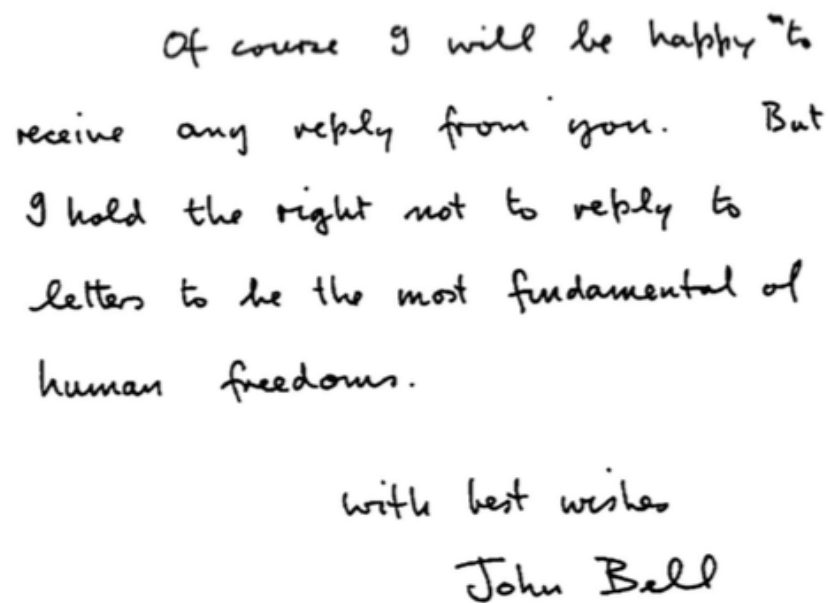 Of course I will be happy to
receive any reply from you. But
I hold the right not to reply to
letters to be the most fundamental of
human freedoms.
with best wishes
John Bell